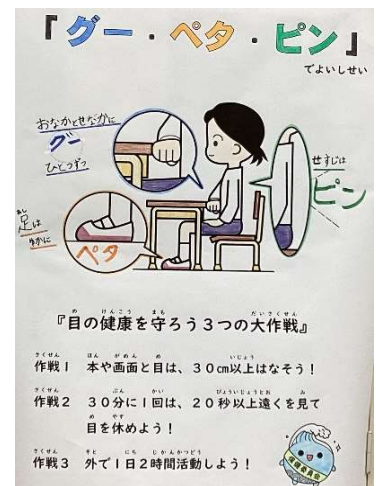 「グー・ペタ・ピン」
でよいしせい
おなかとせなかに
グー
ひとつずつ
せすじは
ピン
足は
ゆかに
ペタ
『目の健康を守ろう３つの大作戦』
作戦１ 本や画面と目は、３０㎝以上はなそう！
作戦２ ３０分に１回は、２０秒以上遠くを見て
目を休めよう！
作戦３ 外で１日２時間活動しよう！
保健委員会